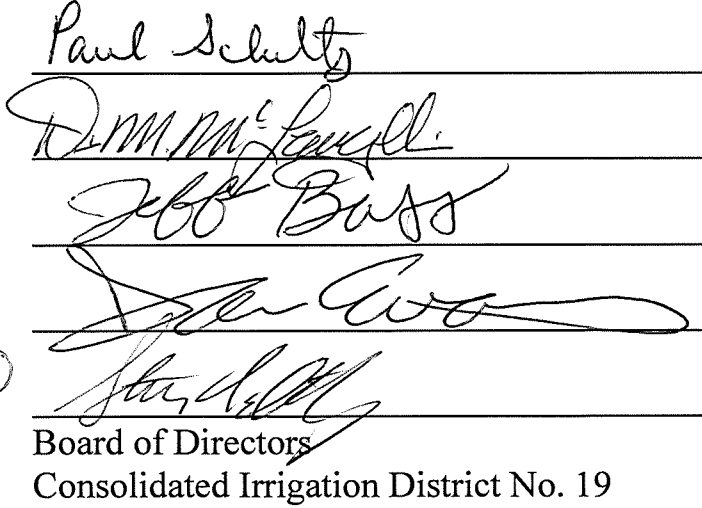 Paul Schultz
Jeff Bass
Dan Evans
Board of Directors
Consolidated Irrigation District No. 19